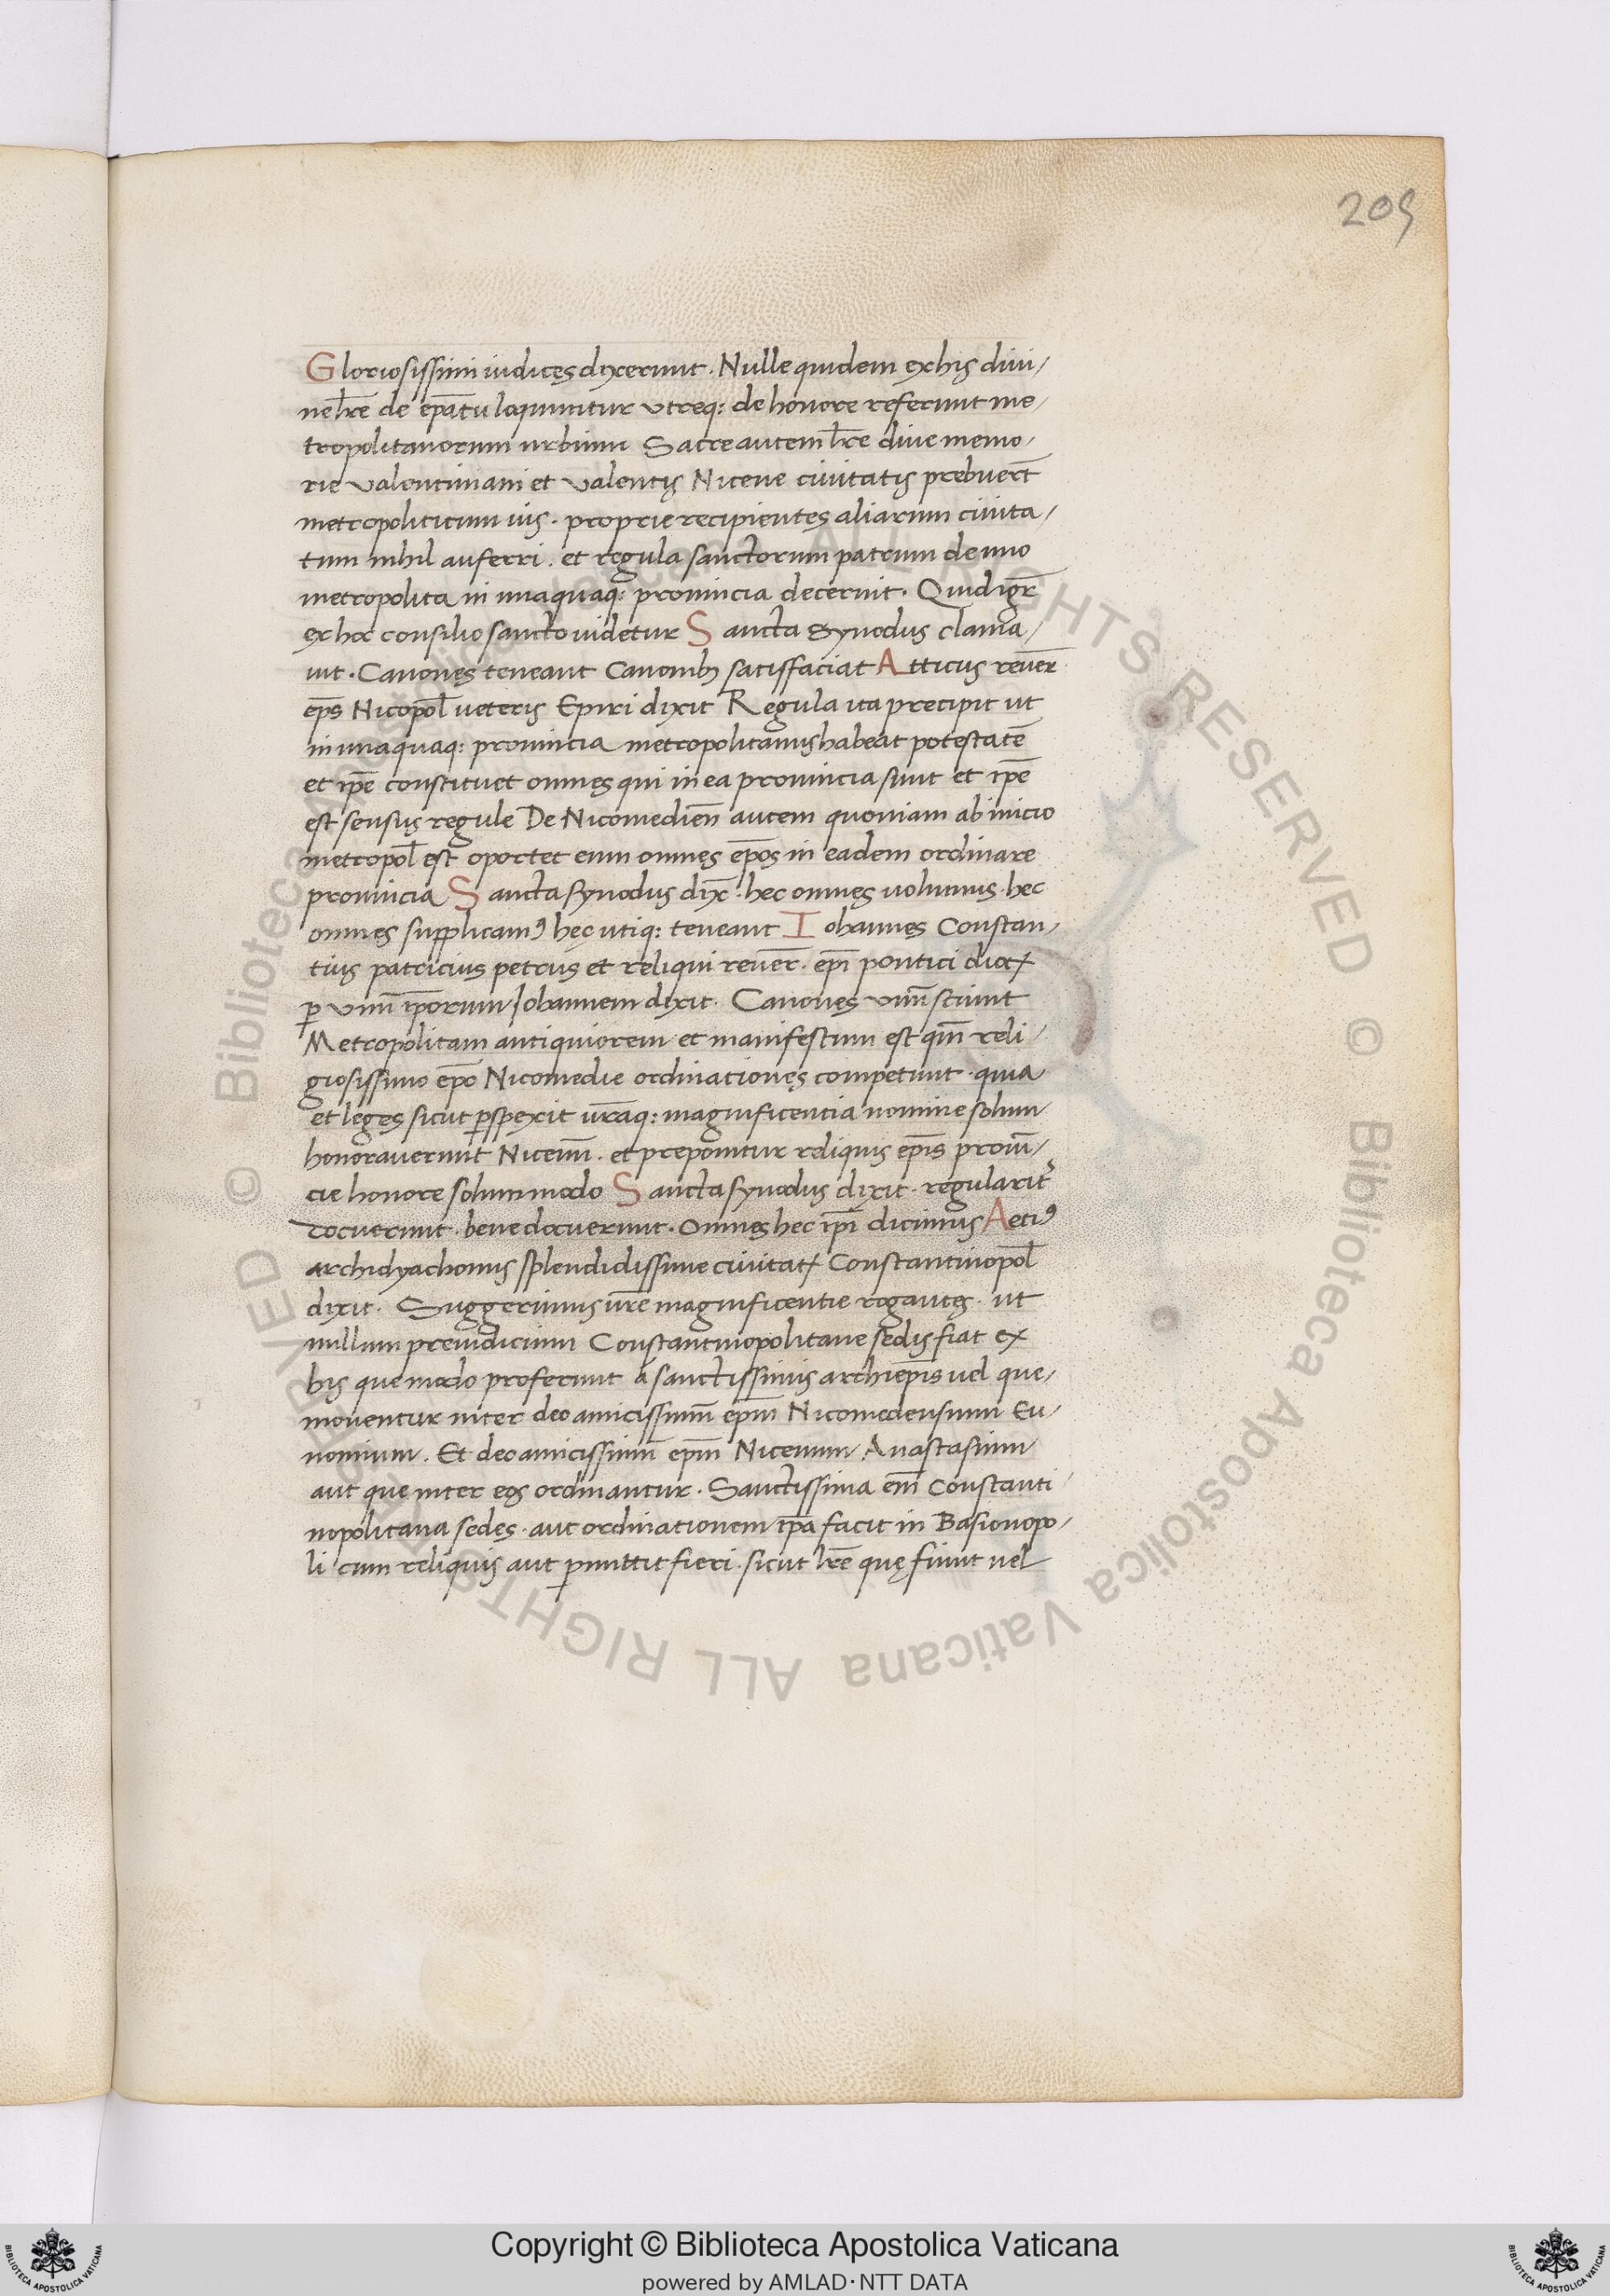 209
Gloriosissimi iudices dixerunt. Nulle quidem ex his diui/
ne l̅r̅e de ep̅a̅tu loquuntur utreq: de honore referunt me/
tropolitanorum urbium Sacre autem l̅r̅e diue memo/
rie Valentiniani et Valentis Nicene ciuitatis prebuer̅t
metropoliticum ius. proprie recipientes aliarum ciuita/
tum nihil auferri. et regula sanctorum patrum de uno
metropolita in unaquaq: prouincia decernit. Quid igr̅
ex hoc consilio sancto uidetur Sancta Synodus clama/
uit. Canones teneant Canonibꝫ satisfaciat Atticus reuer̅
ep̅s Nicopol̅ ueteris Epiri dixit Regula ita precipit ut
in unaquaq: prouincia metropolitanus habeat potestate̅
et ip̅e constituet omnes qui in ea prouincia sunt et ip̅e
est sensus regule De Nicomedien̅ autem quoniam ab inicio
metropol̅ est oportet eum omnes ep̅os in eadem ordinare
prouincia Sancta synodus dix̅. hec omnes uolumus. hec
omnes supplicamꝰ hec utiq: teneant Iohannes Constan/
tius patricius petrus et reliqui reuer̅. ep̅i pontici dioc̅
ꝑ unu̅ ip̅orum Iohannem dixit. Canones unu̅ sciunt
Metropolitam antiquiorem et manifestum est qm̅ reli/
giosissimo ep̅o Nicomedie ordinationes competunt. quia
et leges sicut ꝑspexit ur̅aq: magnificentia nomine solum
honorauerunt Nicenu̅. et preponitur reliquis ep̅is prouin̅/
cie honore solummodo Sancta synodus dixit. regularit̅
docuerunt. bene docuerunt. omnes hec ip̅i dicimus Aetiꝰ
archidyachonus splendidissime ciuitatꝭ Constantinopol̅
dixit. Suggerimus ur̅e magnificentie rogantes. ut
nullum preiudicium Constantinopolitane sedis fiat ex
his que modo proferunt a sanctissimis archiep̅is uel que/
mouentur inter deo amicissimu̅ ep̅m Nicomedensium Eu/
nomium. Et deo amicissimu̅ ep̅m Nicenum Anastasium
aut que inter eos ordinantur. Sanctissima em̅ Constanti
nopolitana sedes. aut ordinationem ip̅a facit in Basionopo/
li cum reliquis aut ꝑmittit fieri. sicut lr̅e que fiunt uel
© Biblioteca Apostolica Vaticana ALL RIGHTS RESERVED
Copyright © Biblioteca Apostolica Vaticana
powered by AMLAD·NTT DATA
BIBLIOTECA APOSTOLICA VATICANA
BIBLIOTECA APOSTOLICA VATICANA